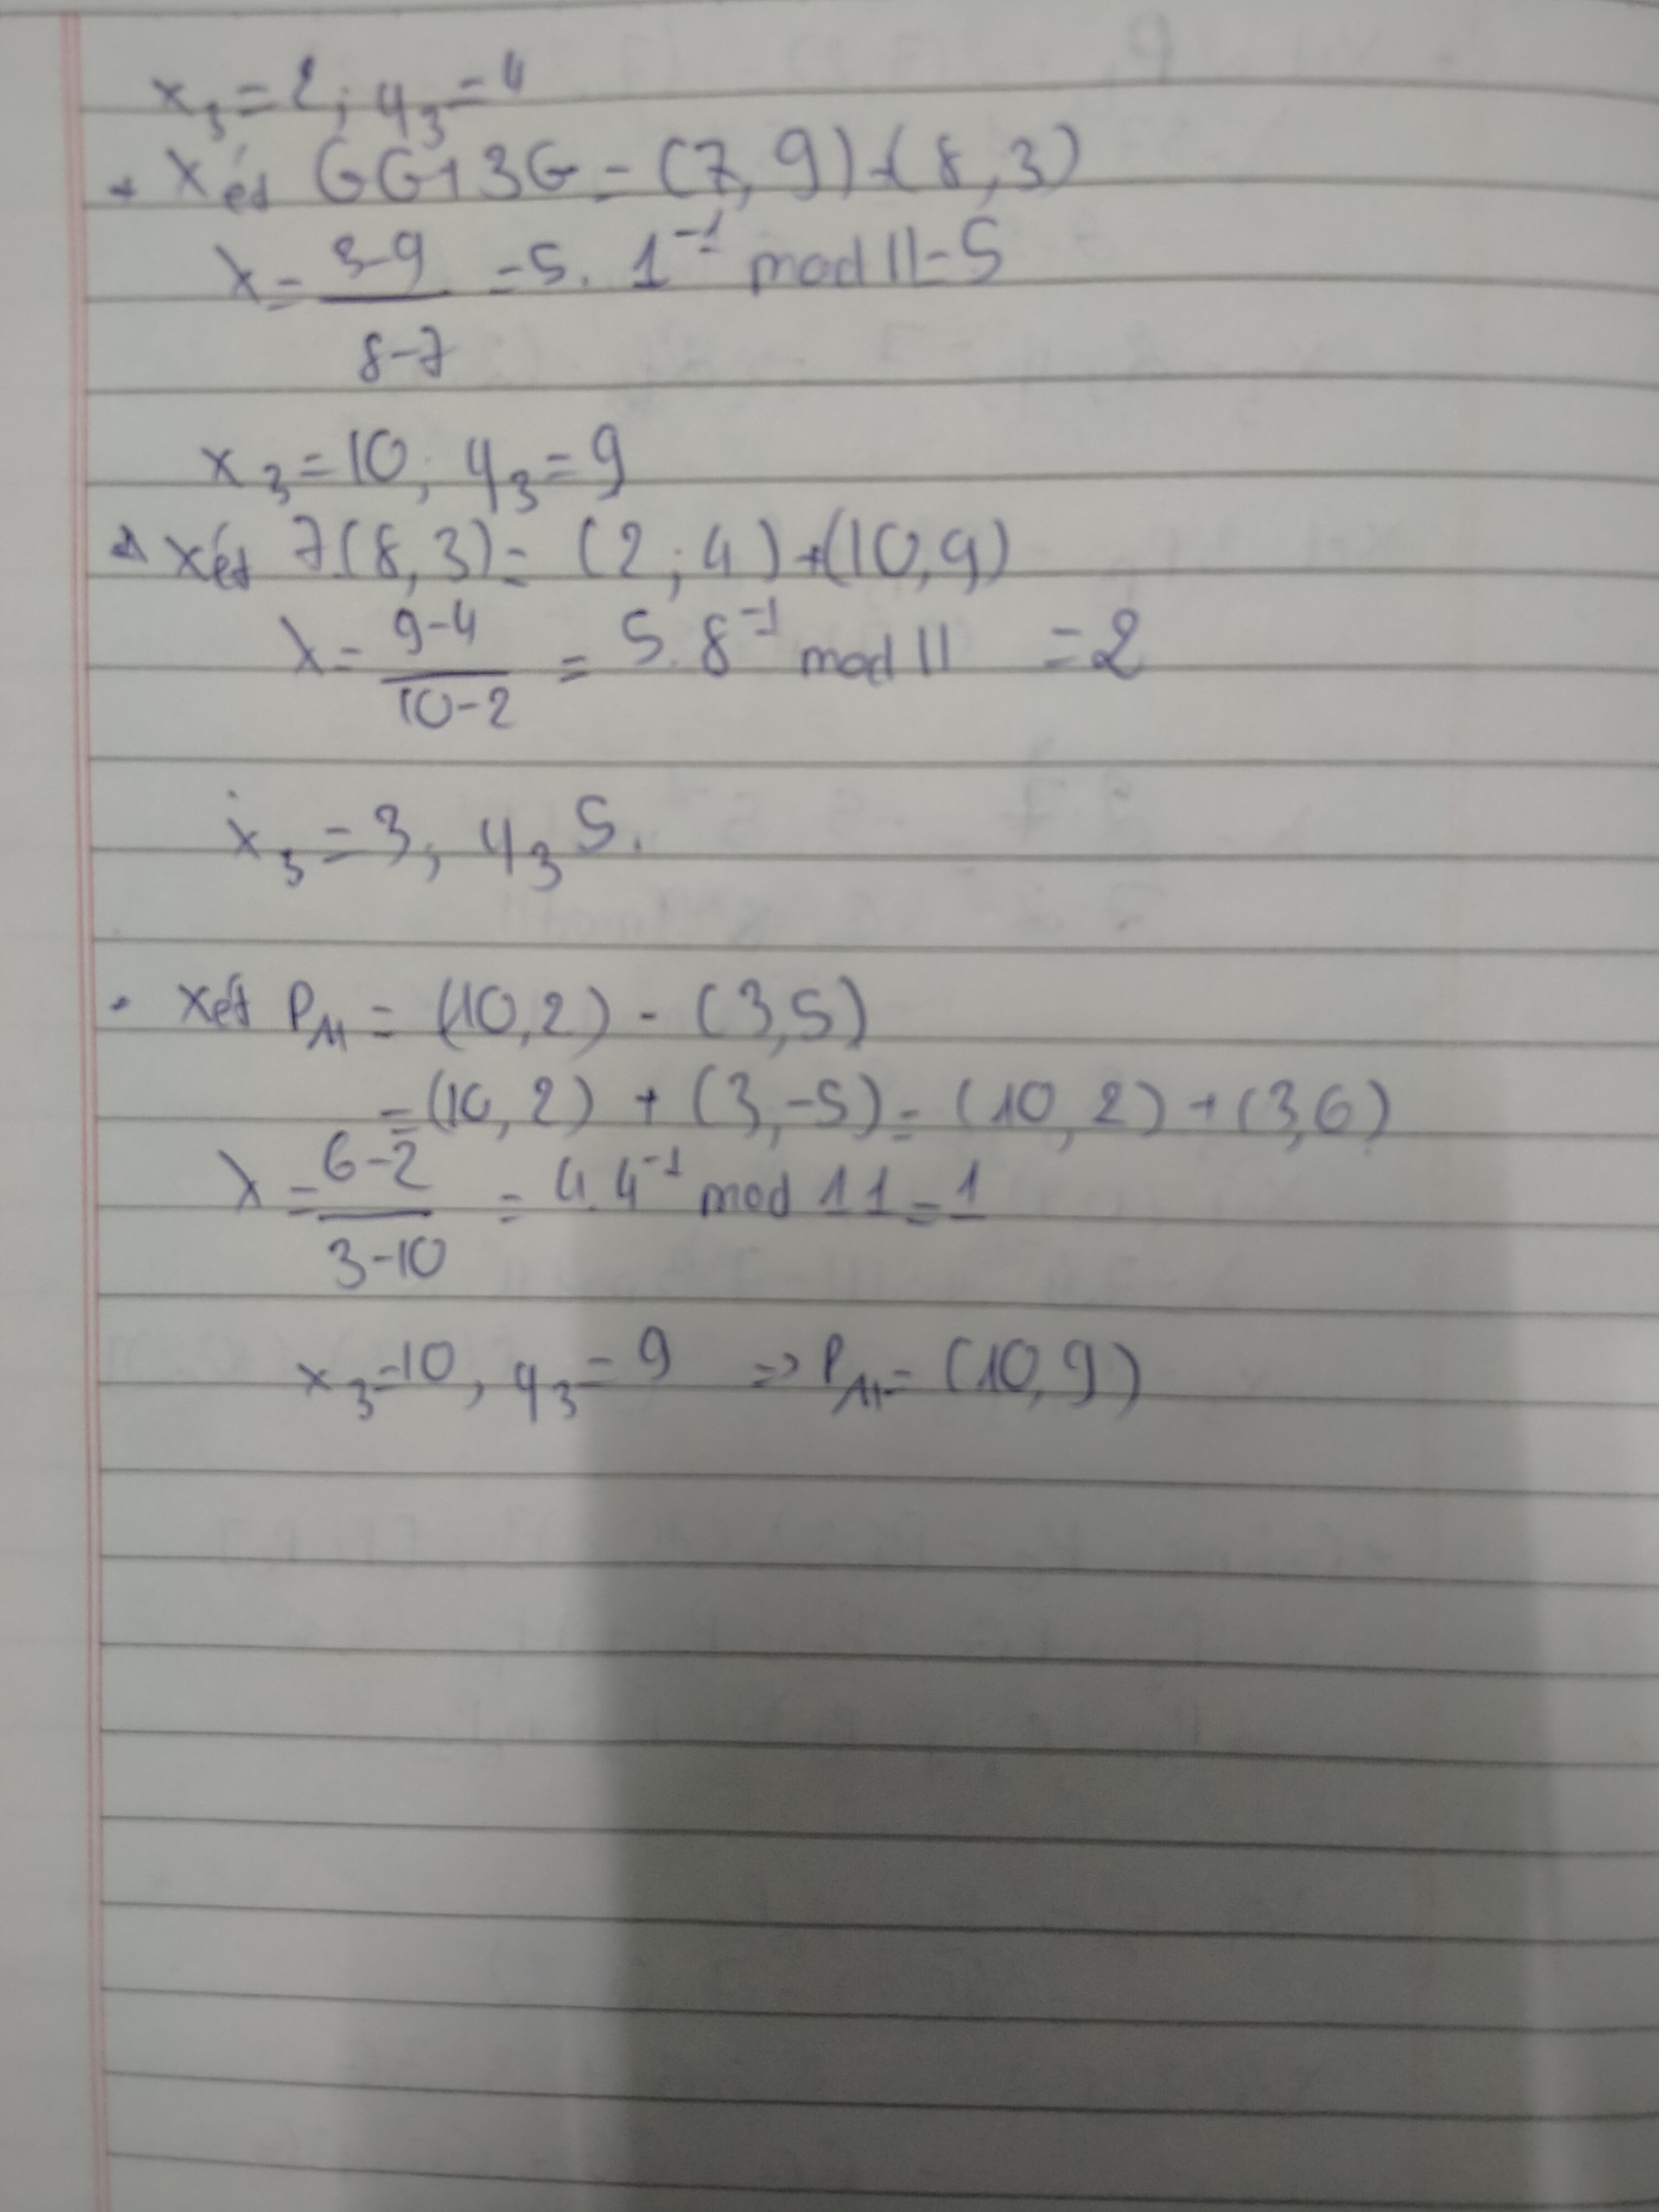 x₃ = 2; y₃ = 4
+ Xét 6G+3G = (7, 9)+(8, 3)
λ = (3-9)/(8-7) = 5. 1⁻¹ mod 11 = 5
x₃ = 10, y₃ = 9
+ xét 7(8, 3) = (2; 4) + (10, 9)
λ = (9-4)/(10-2) = 5. 8⁻¹ mod 11 = 2
x₃ = 3, y₃ 5.
• xét P_M = (10, 2) - (3, 5)
= (10, 2) + (3, -5) = (10, 2) + (3, 6)
λ = (6-2)/(3-10) = 4. 4⁻¹ mod 11 = 1
x₃ = 10, y₃ = 9 => P_M = (10, 9)